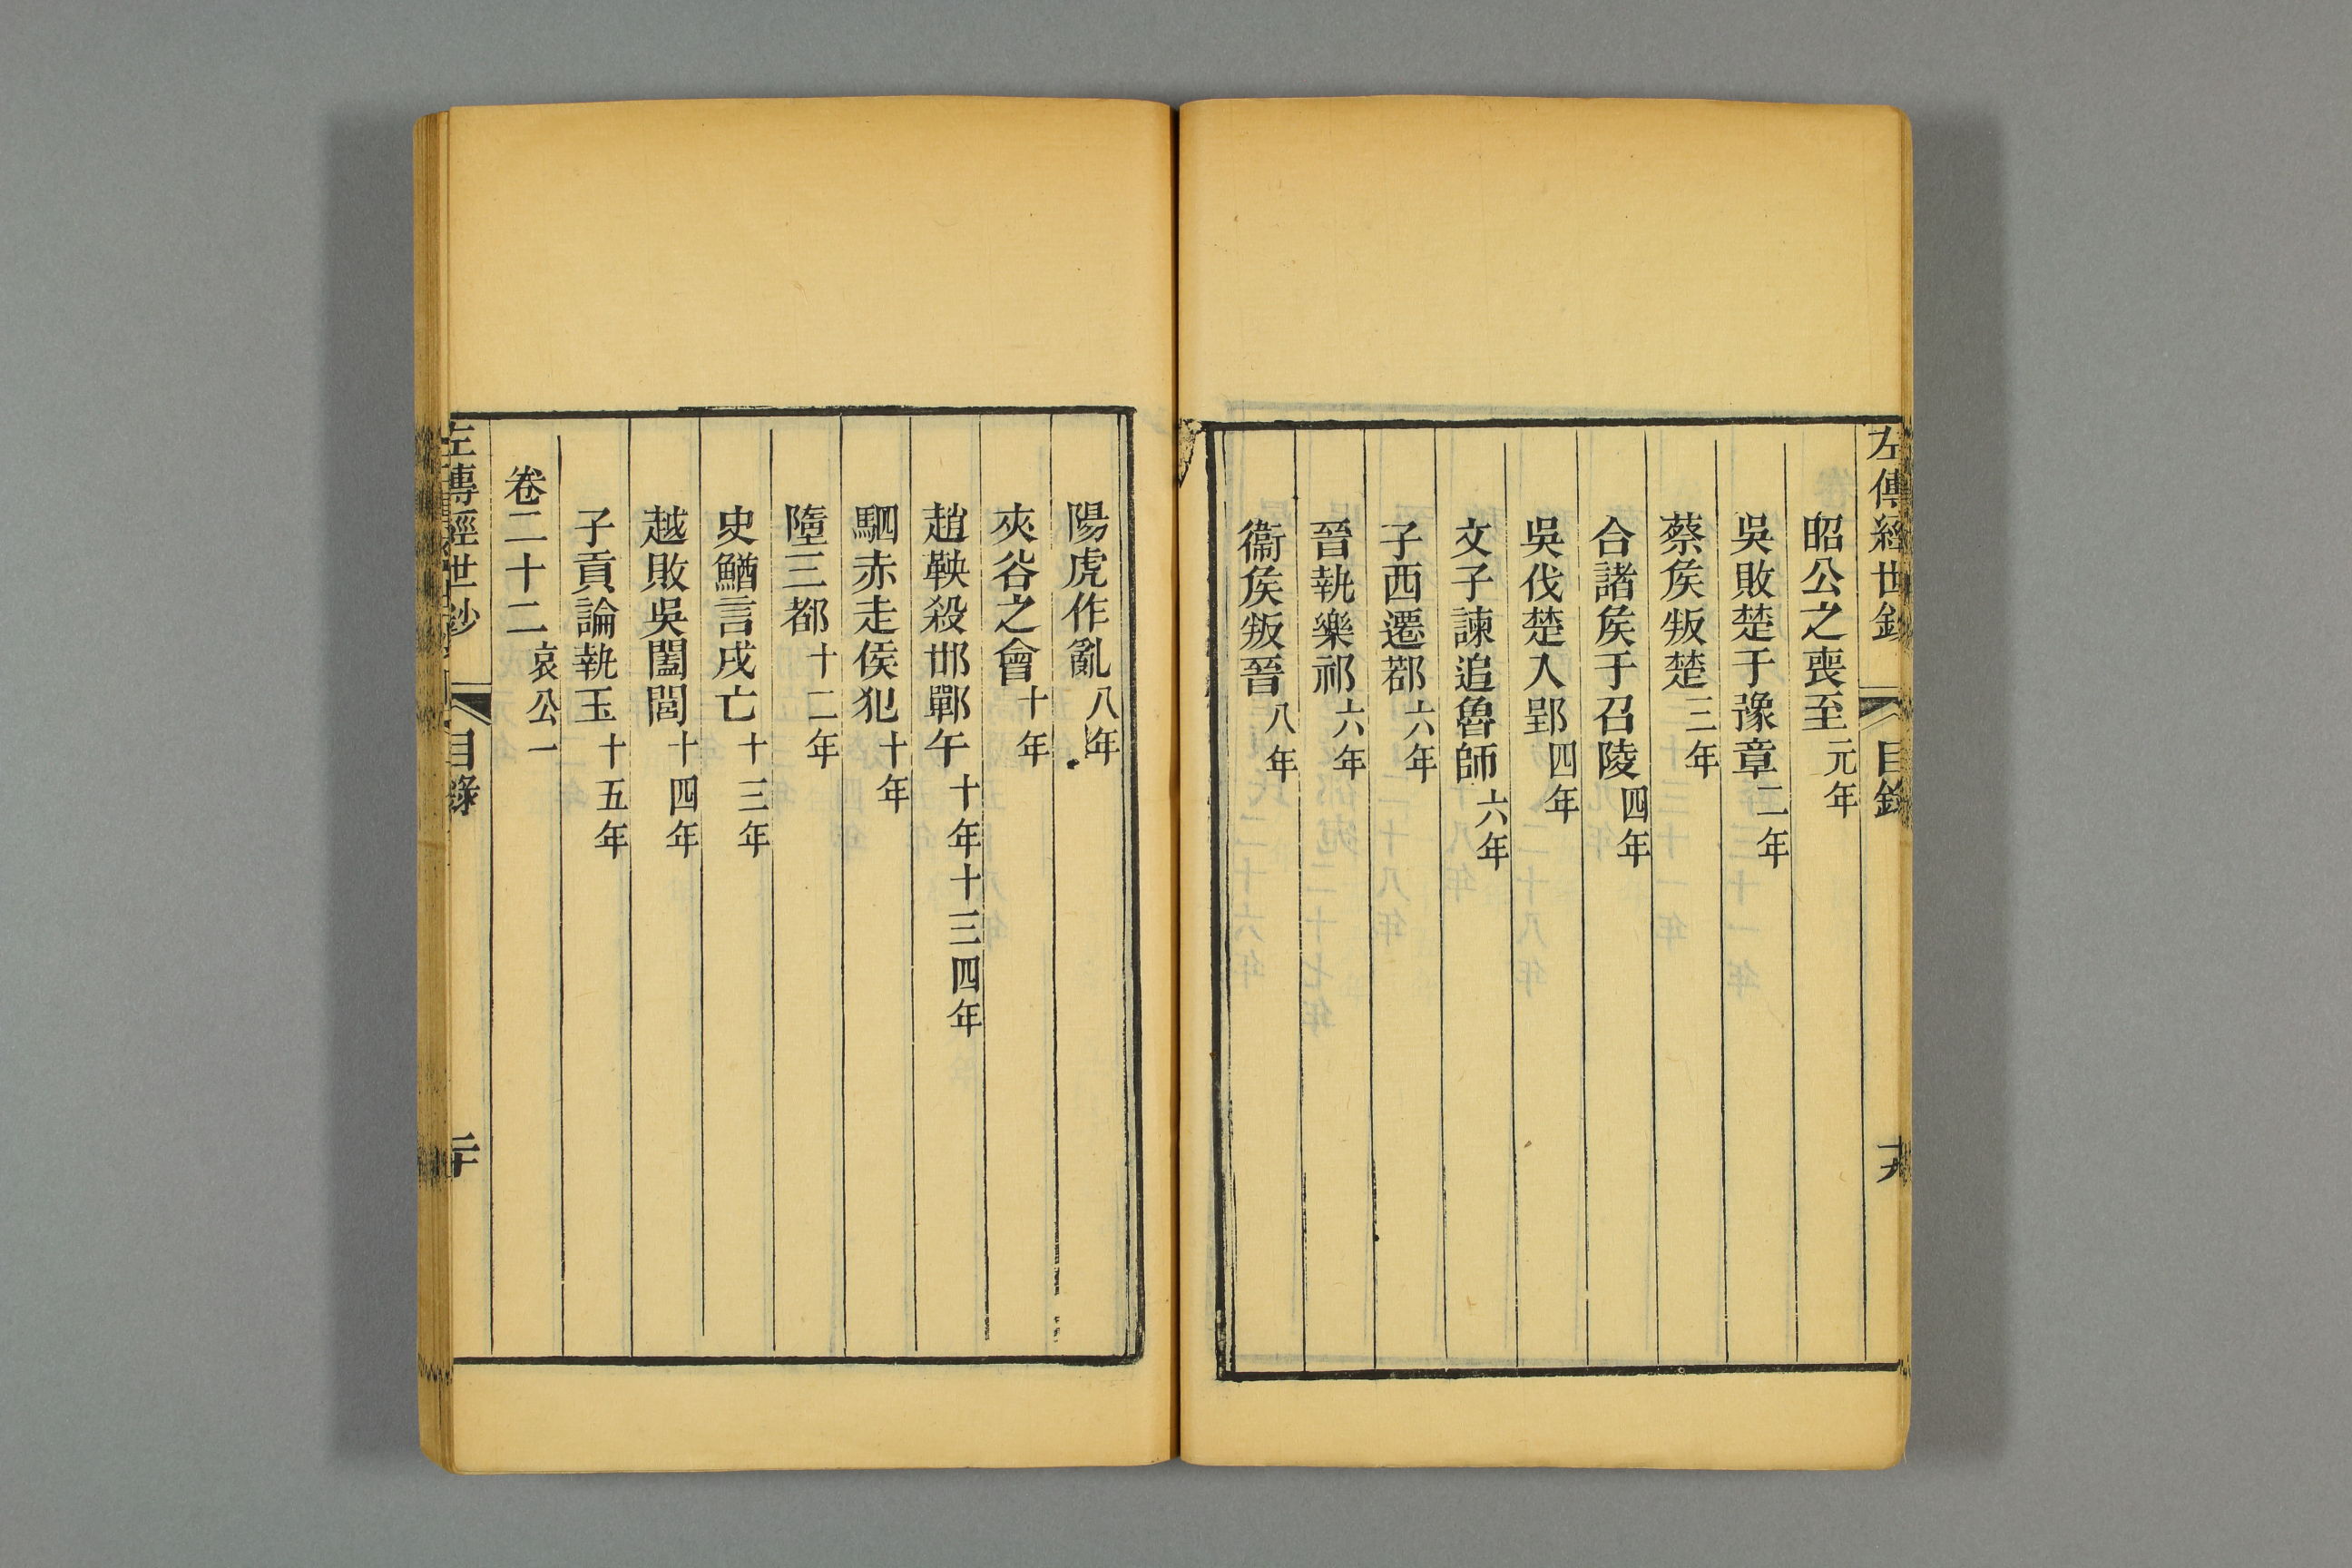 左傳經世鈔 目錄 十九
昭公之喪至元年
吳敗楚于豫章二年
蔡矦叛楚三年
合諸矦于召陵四年
吳伐楚入郢四年
文子諫追魯師六年
子西遷鄀六年
晉執樂祁六年
衞矦叛晉八年
陽虎作亂八年
夾谷之會十年
趙鞅殺邯鄲午十年十三四年
駟赤走侯犯十年
墮三都十二年
史鰌言戌亡十三年
越敗吳闔閭十四年
子貢論執玉十五年
卷二十二哀公一
左傳經世鈔 目錄 二十